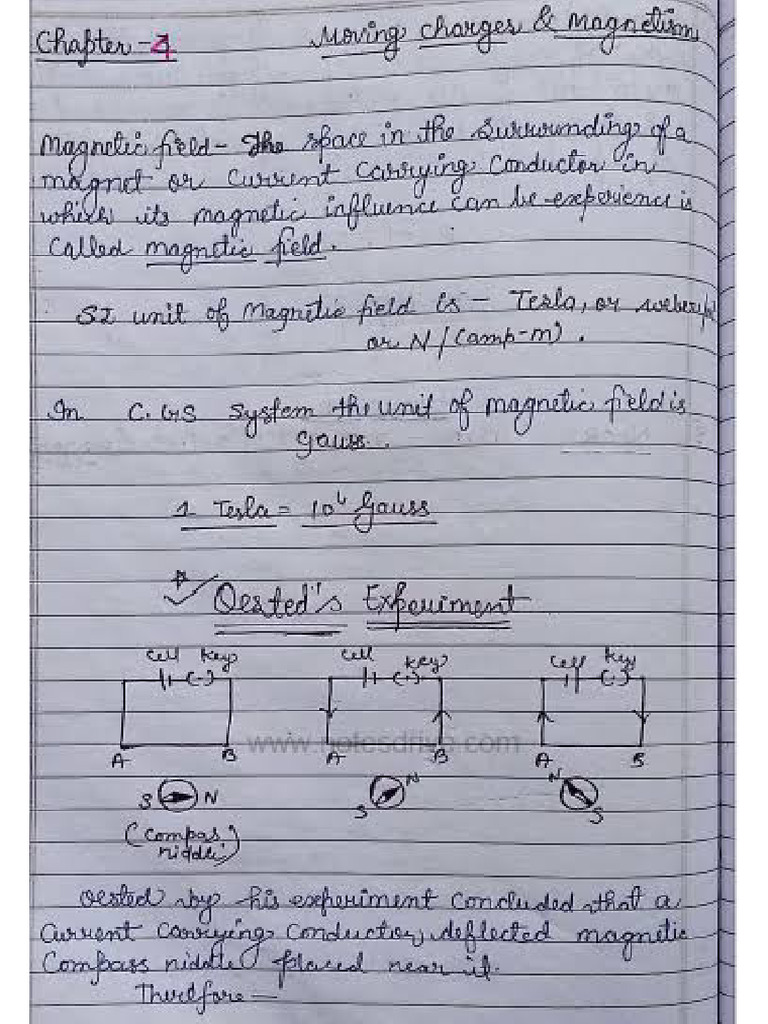 Chapter-4 Moving charges & Magnetism
Magnetic field - The space in the surrundings of a
magnet or current carrying conductor in
which its magnetic influence can be experience is
called magnetic field.
SI unit of Magnetic field is - Tesla, or
or N/(amp-m).
In C.G.S system the unit of magnetic field is
gauss.
1 Tesla = 10⁴ Gauss
Oested's Experiment
Cell Key Cell Key Cell Key
A B A B A B
www.notesdrive.com
S N S N N S
(Compas
niddle)
Oested by his experiment concluded that a
current carrying conductor, deflected magnetic
compass niddle placed near it.
Therefore —